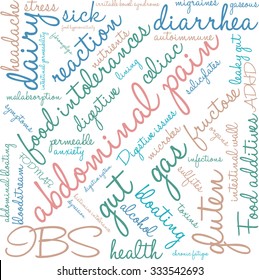 irritable bowel syndrome
migraines
gaseous
stress
sweating
diarrhea
autoimmune
headache
dairy
reaction
permeability
nutrients
malabsorption
food intolerances
digestive
celiac
living
salicylates
leaky gut
fructose
IDED
permeable
anxiety
abdominal pain
Digestive issues
Food additives
intestinal wall
infections
FODMAP
sulfites
abdominal bloating
bloodstream
gut
gas
alcohol
bloating
toxins
gluten
IBS
health
chronic fatigue
333542693